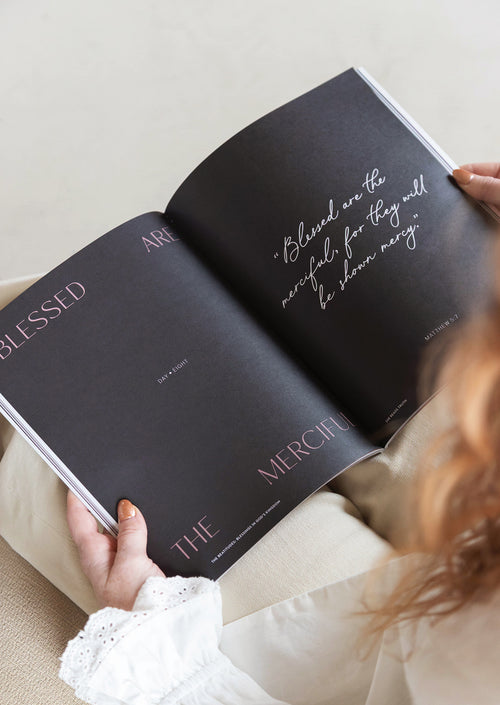 BLESSED
ARE
DAY • EIGHT
THE
MERCIFUL
THE BEATITUDES: BLESSINGS IN GOD'S KINGDOM
"Blessed are the
merciful, for they will
be shown mercy."
MATTHEW 5:7